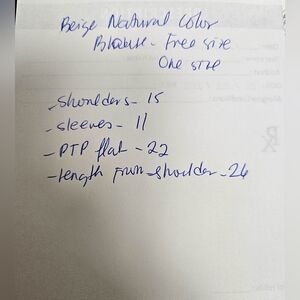 Beige Natural Color
Blouse - Free size
One size
- shoulders - 15
- sleeves - 11
- PTP flat - 22
- length from shoulder - 26